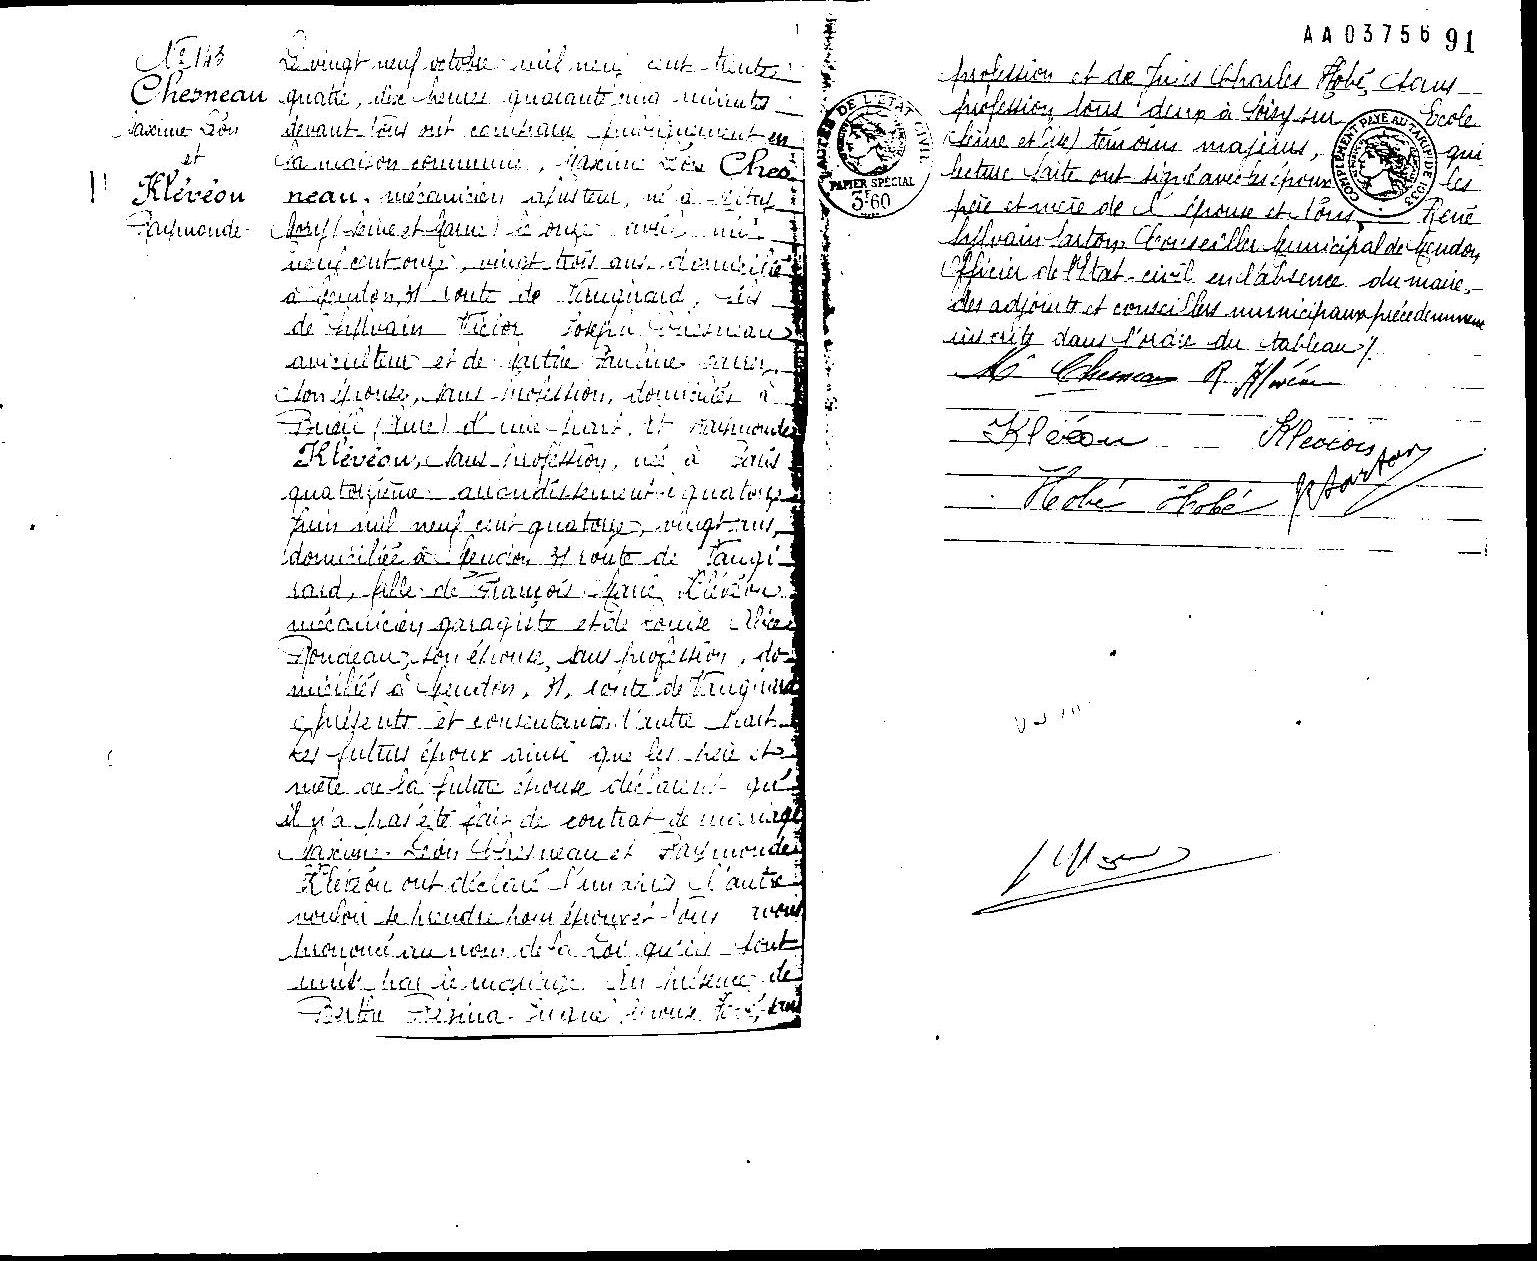 Nº 143
Chesneau
Maxime Léon
et
Klévéon
Raymonde
Le vingt neuf octobre mil neuf cent trente
quatre, dix heures quarante cinq minutes
devant Nous ont comparu publiquement en
la maison commune, Maxime Léon Ches
neau, mécanicien ajusteur, né à Vitry
(Seine et Marne) le onze avril mil
neuf cent onze, vingt trois ans, domicilié
à Meudon, 31 route de Vaugirard, fils
de Sylvain Victor Joseph Chesneau
aviculteur et de Marthe Pauline
son épouse, sans profession, domiciliés à
Bueil (Eure) d'une part, Et Raymonde
Klévéon, sans profession, née à Paris
quatorzième arrondissement le quatorze
juin mil neuf cent quatorze, vingt ans,
domiciliée à Meudon 31 route de Vaugi
rard, fille de François Marie Klévéon
mécanicien garagiste et de Louise Alice
Rondeau, son épouse, sans profession, do
miciliés à Meudon, 31, route de Vaugirard
présents et consentants d'autre part
Les futurs époux ainsi que les père et
mère de la future épouse déclarent qu'
il n'a pas été fait de contrat de mariage
Maxime Léon Chesneau et Raymonde
Klévéon ont déclaré l'un après l'autre
vouloir se prendre pour époux et Nous avons
prononcé au nom de la Loi qu'ils sont
unis par le mariage. En présence de
Berthe épouse Hobé, sans
AA 03756 91
profession et de Jules Charles Hobé, sans
profession, tous deux à Soisy sur Ecole
(Seine et Oise) témoins majeurs, qui
lecture faite ont signé avec les époux les
père et mère de l'épouse et Nous, René
Sylvain Sartory Conseiller Municipal de Meudon,
Officier de l'Etat-civil en l'absence du maire,
des adjoints et conseillers municipaux précédemment
inscrits dans l'ordre du tableau /.
M Chesneau R Klévéon
Klévéon Klévéon
Hobé Hobé R Sartory
ACTES DE L'ÉTAT CIVIL
PAPIER SPÉCIAL
3F60
COMPLÉMENT PAYÉ AU TARIF DE 1933